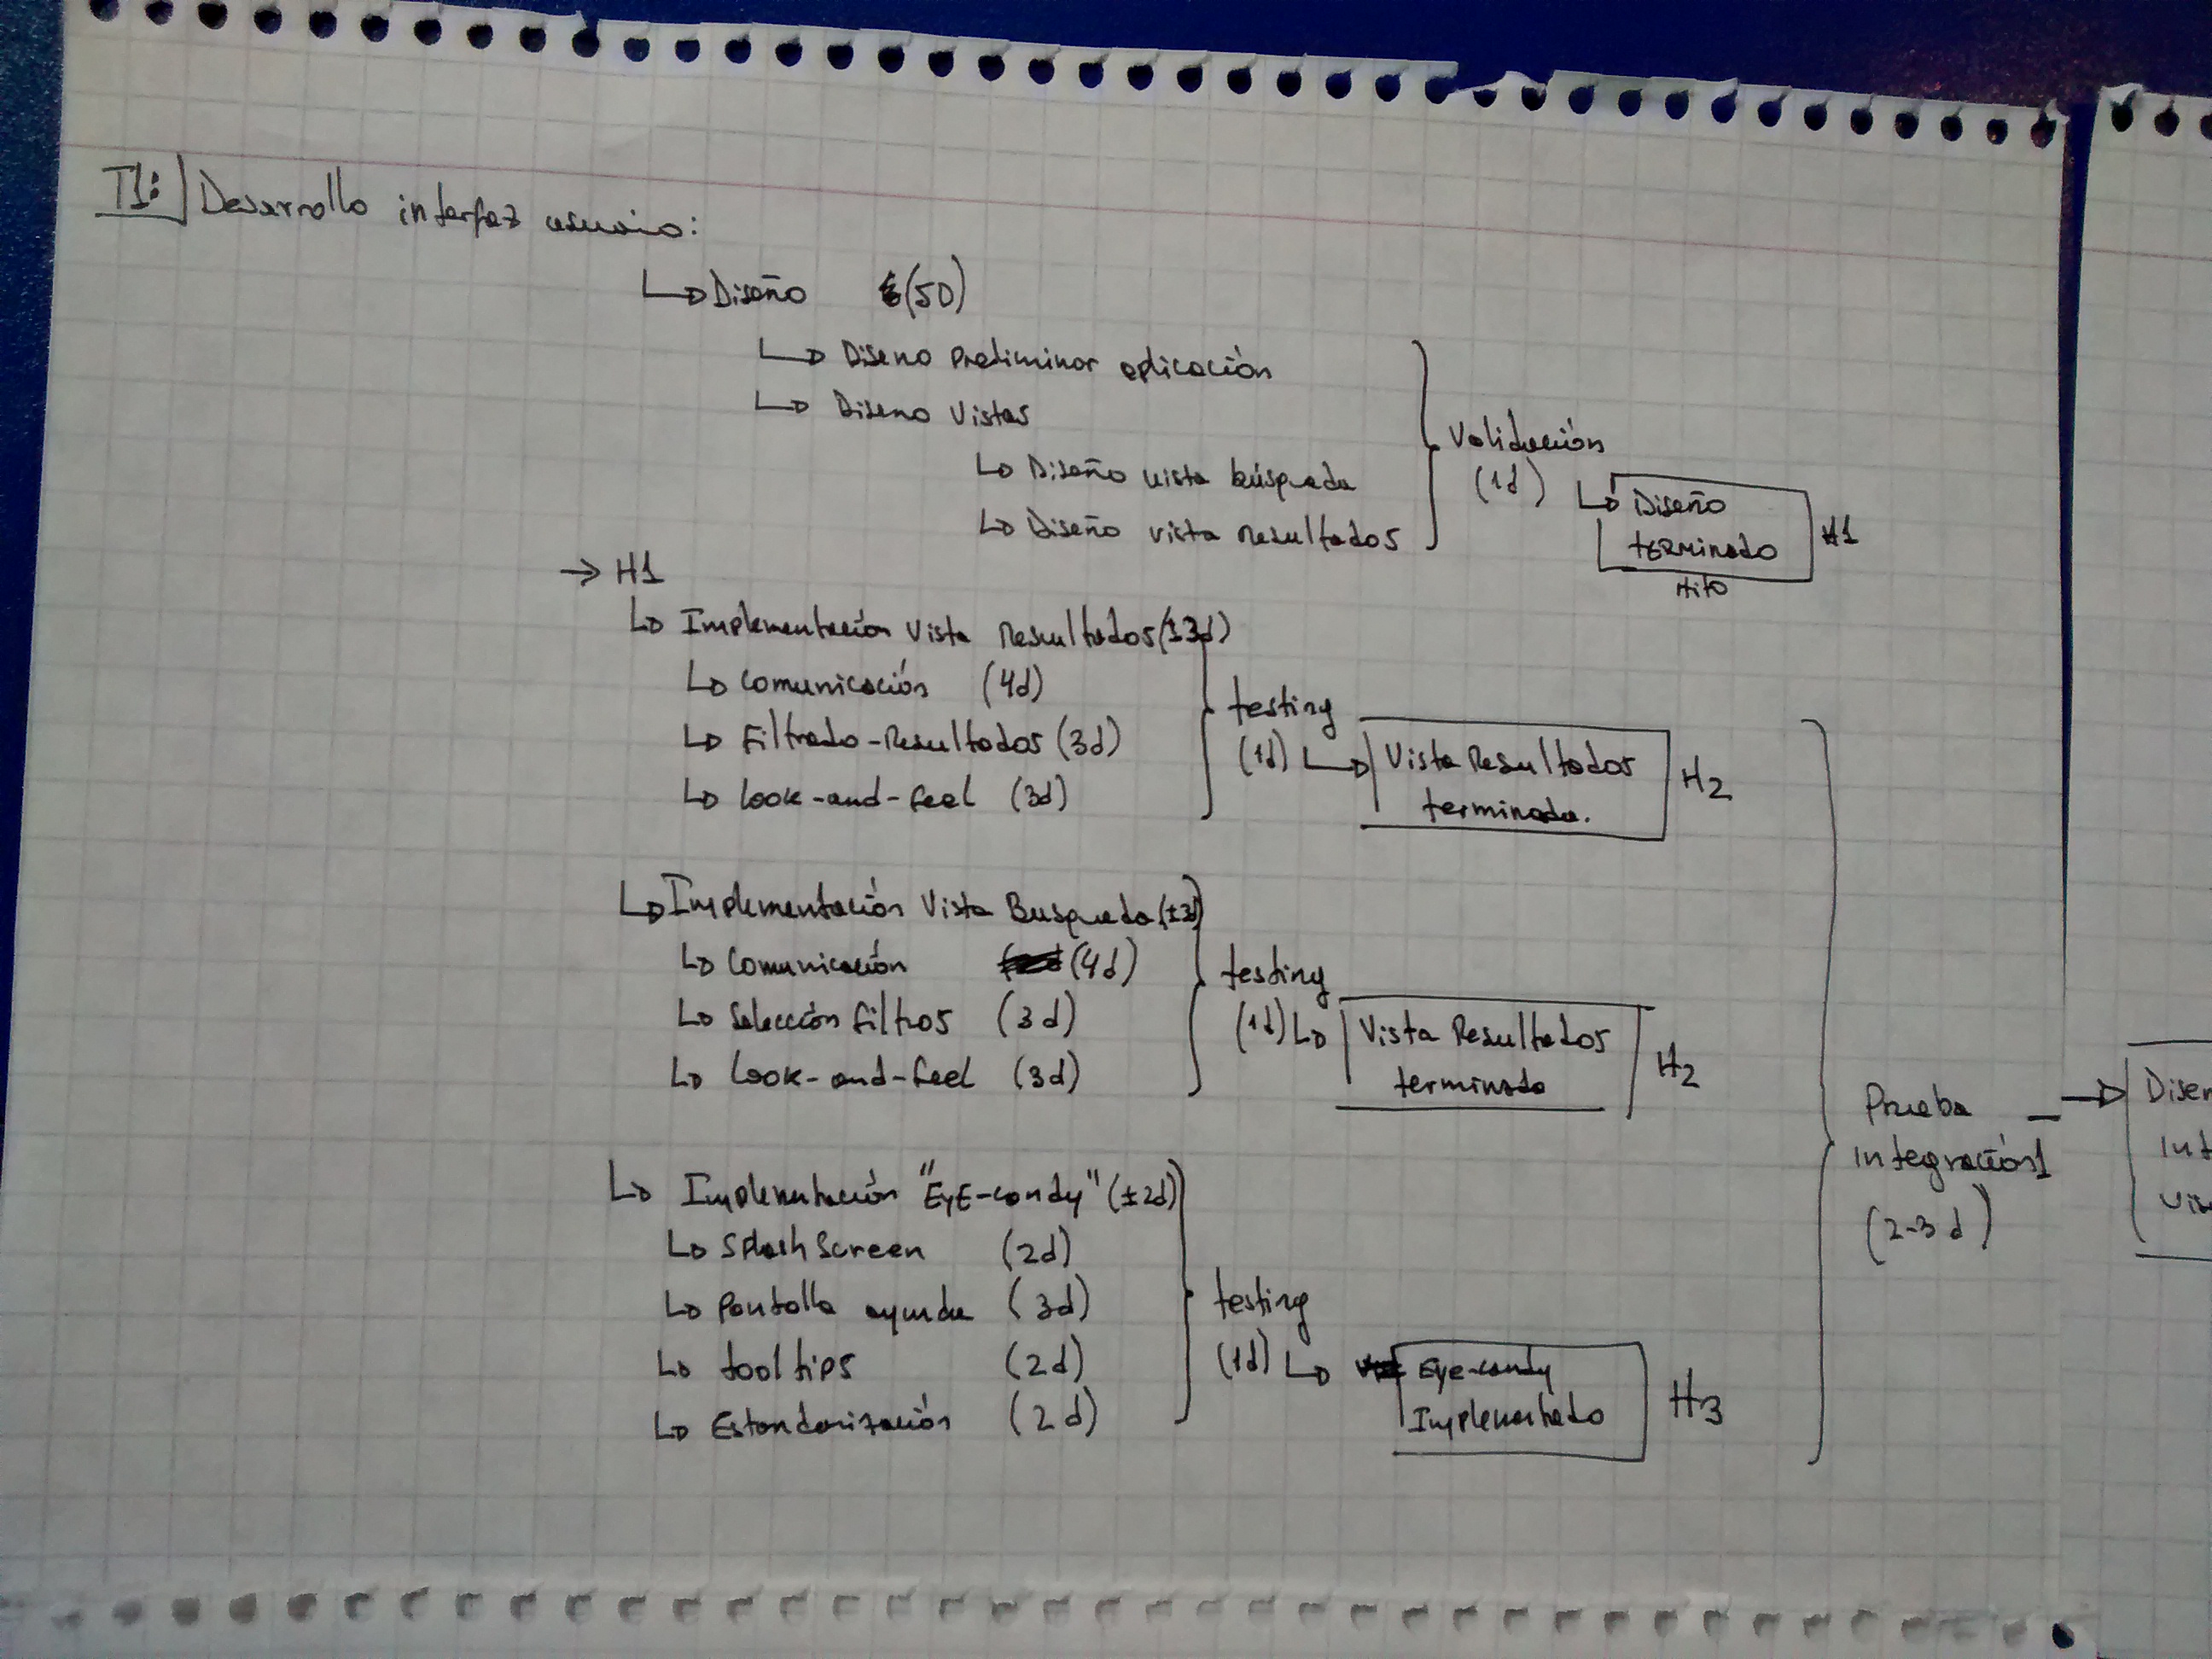 T1: Desarrollo interfaz usuario:
↳ Diseño (5D)
↳ Diseno Preliminar aplicación
↳ Diseno Vistas
↳ Diseño vista búsqueda
↳ Diseño vista resultados
Validación
(1d)
↳ Diseño
TERMinado
Hito
H1
→ H1
↳ Implementación Vista Resultados (±3d)
↳ Comunicación (4d)
↳ Filtrado-Resultados (3d)
↳ look-and-feel (3d)
testing
(1d) ↳
Vista Resultados
terminada.
H2
↳ Implementación Vista Busqueda (±3d)
↳ Comunicación (4d)
↳ Selección filtros (3d)
↳ look-and-feel (3d)
testing
(1d) ↳
Vista Resultados
terminado
H2
↳ Implementación "EyE-candy" (±2d)
↳ Splash Screen (2d)
↳ Pantalla ayuda (3d)
↳ tooltips (2d)
↳ Estandarización (2d)
testing
(1d) ↳
Eye-candy
Implementado
H3
Prueba
integración1
(2-3d)
→